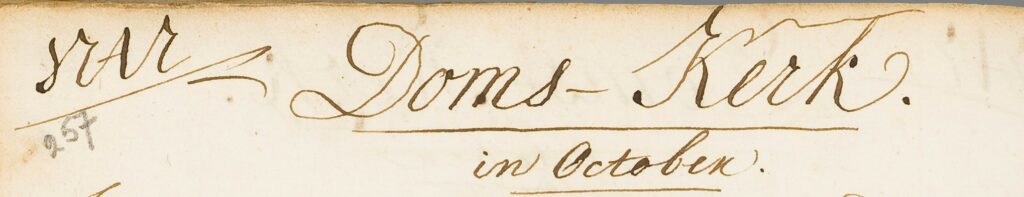 Doms-Kerk.
257
in October.